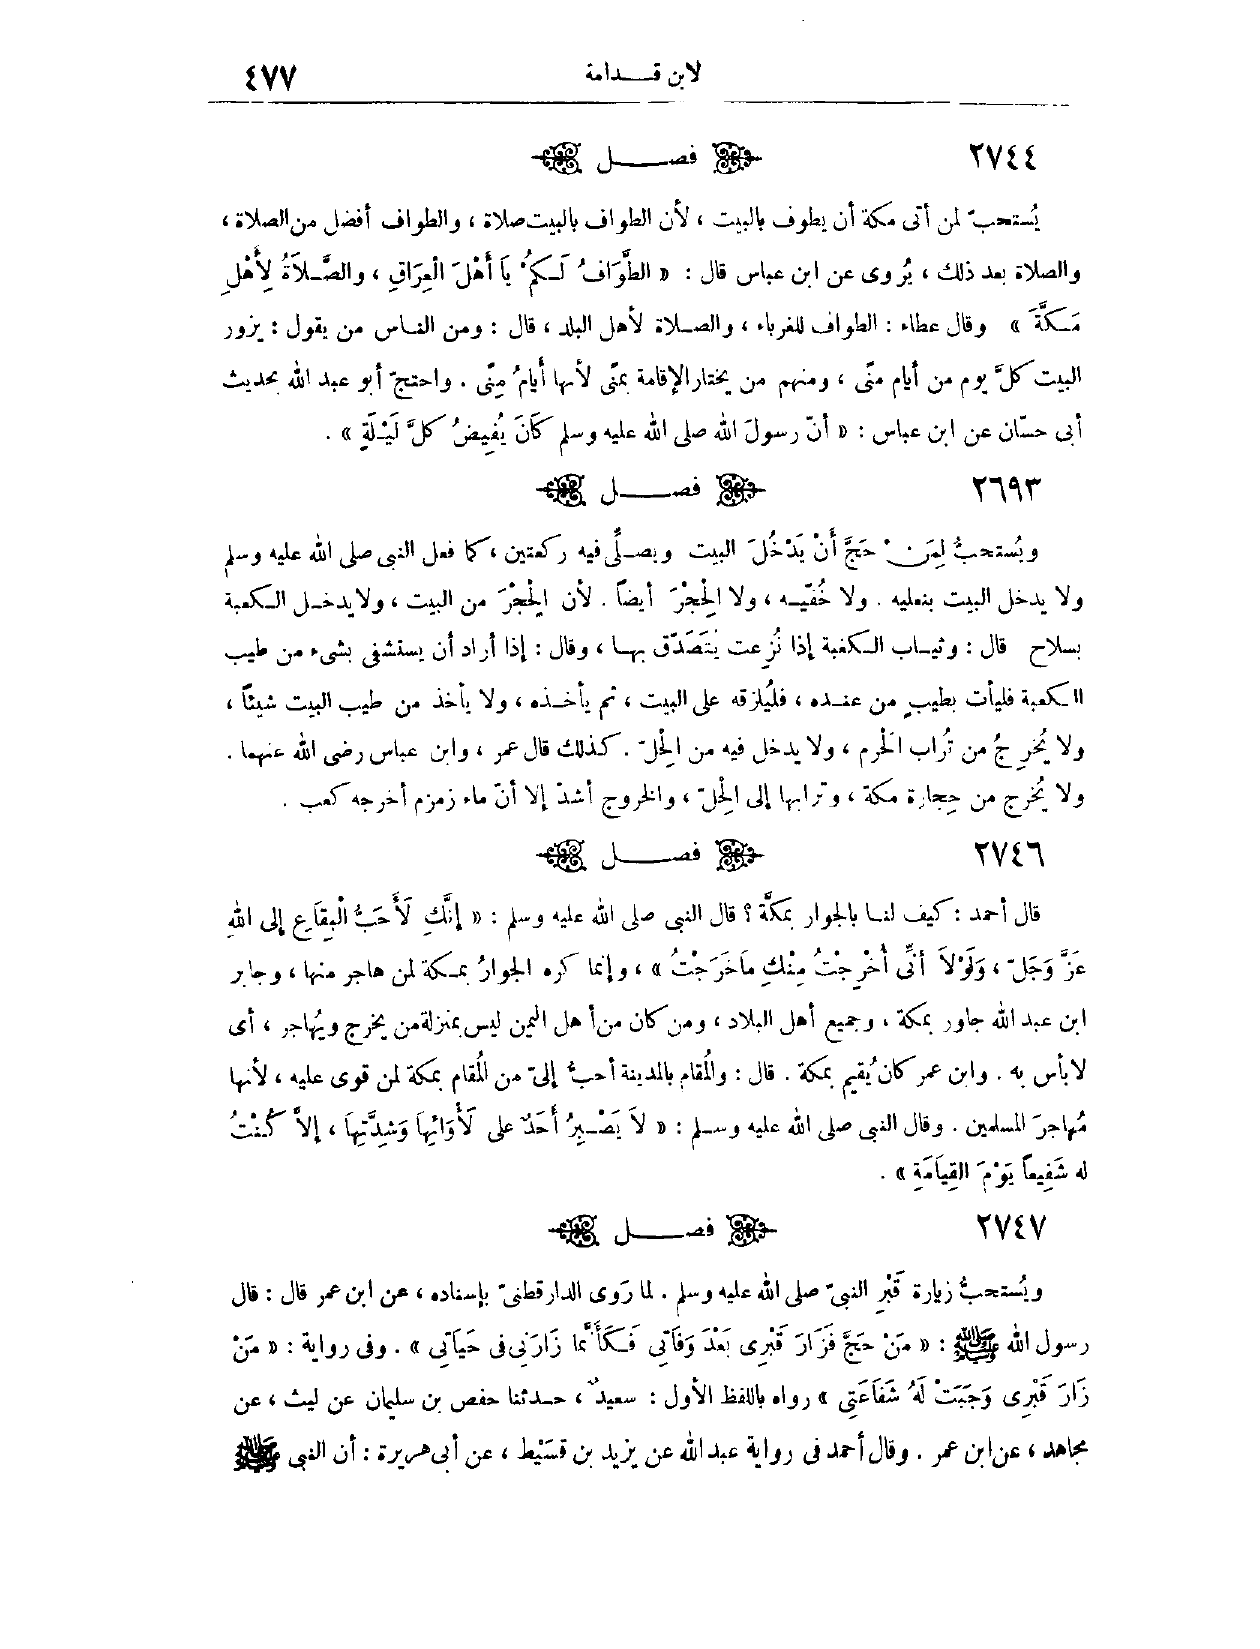 لابن قدامة ٤٧٧
٢٧٤٤ فصل
يُستحبّ لمن أتى مكة أن يطوف بالبيت ، لأن الطواف بالبيت صلاة ، والطواف أفضل من الصلاة ،
والصلاة بعد ذلك ، يُروى عن ابن عباس قال : « الطَّوَافُ لَكُمْ يَا أَهْلَ الْعِرَاقِ ، والصَّلاَةُ لِأَهْلِ
مَكَّةَ » وقال عطاء : الطواف للغرباء ، والصلاة لأهل البلد ، قال : ومن الناس من يقول : يزور
البيت كلَّ يوم من أيام منًى ، ومنهم من يختار الإقامة بمنًى لأنها أيامُ مِنًى . واحتجّ أبو عبد الله بحديث
أبى حسّان عن ابن عباس : « أنّ رسولَ الله صلى الله عليه وسلم كَانَ يُفِيضُ كلَّ لَيْلَةٍ » .
٢٦٩٣ فصل
ويُستحبُّ لِمَن حَجَّ أَنْ يَدْخُلَ البيت ويصلِّى فيه ركعتين ، كما فعل النبى صلى الله عليه وسلم
ولا يدخل البيت بنعليه . ولا خُفّيه ، ولا الحِجْرَ أيضاً . لأن الحِجْرَ من البيت ، ولا يدخل الكعبة
بسلاح قال : وثياب الكعبة إذا نُزعت يُتَصَدّق بها ، وقال : إذا أراد أن يستشفى بشىء من طيب
الكعبة فليأت بطيبٍ من عنده ، فليُلزقه على البيت ، ثم يأخذه ، ولا يأخذ من طيب البيت شيئاً ،
ولا يُخرِجُ من تُراب الحرم ، ولا يدخل فيه من الحِلّ . كذلك قال عمر ، وابن عباس رضى الله عنهما .
ولا يُخرج من حِجارة مكة ، وترابها إلى الحِلّ ، والخروج أشدّ إلا أنّ ماء زمزم أخرجه كعب .
٢٧٤٦ فصل
قال أحمد : كيف لنا بالجوار بمكَّة ؟ قال النبى صلى الله عليه وسلم : « إنَّكِ لَأَحَبُّ الْبِقَاعِ إلى اللهِ
عَزَّ وَجَلّ ، وَلَوْلاَ أنِّى أُخْرِجْتُ مِنْكِ مَاخَرَجْتُ » ، وإنما كره الجوارُ بمكة لمن هاجر منها ، وجابر
ابن عبد الله جاور بمكة ، وجميع أهل البلاد ، ومن كان من أهل اليمن ليس بمنزلة من يخرج ويُهاجر ، أى
لا بأس به . وابن عمر كان يُقيم بمكة . قال : والمُقام بالمدينة أحبُّ إلىّ من المُقام بمكة لمن قوى عليه ، لأنها
مُهاجرَ المسلمين . وقال النبى صلى الله عليه وسلم : « لاَ يَصْبِرُ أَحَدٌ على لَأْوَائِهَا وَشِدَّتِهَا ، إلاَّ كُنْتُ
له شَفِيعاً يَوْمَ القِيَامَةِ » .
٢٧٤٧ فصل
ويُستحبُّ زيارة قَبْرِ النبىّ صلى الله عليه وسلم . لما رَوى الدارقطنىّ بإسناده ، عن ابن عمر قال : قال
رسول الله ﷺ : « مَنْ حَجَّ فَزَارَ قَبْرِى بَعْدَ وَفَاتِى فَكَأَنَّمَا زَارَنِى فى حَيَاتِى » . وفى رواية : « مَنْ
زَارَ قَبْرِى وَجَبَتْ لَهُ شَفَاعَتِى » رواه باللفظ الأول : سعيدٌ ، حدثنا حفص بن سليمان عن ليث ، عن
مجاهد ، عن ابن عمر . وقال أحمد فى رواية عبد الله عن يزيد بن قسَيْط ، عن أبى هريرة : أن النبى ﷺ